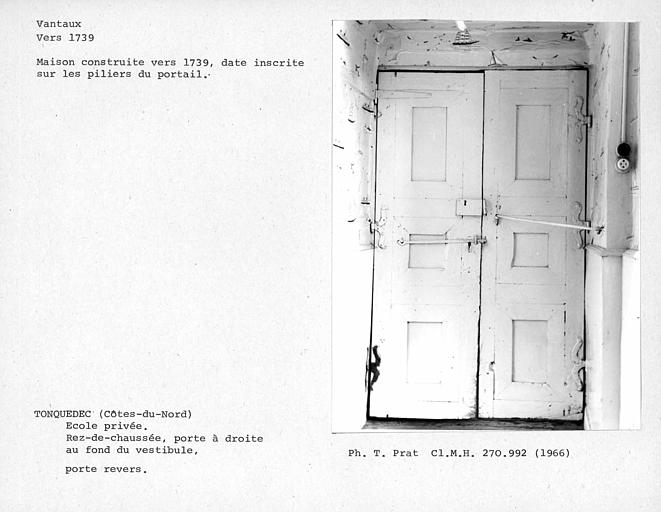 Vantaux
Vers 1739
Maison construite vers 1739, date inscrite
sur les piliers du portail.
TONQUEDEC (Côtes-du-Nord)
Ecole privée.
Rez-de-chaussée, porte à droite
au fond du vestibule,
porte revers.
Ph. T. Prat Cl.M.H. 270.992 (1966)